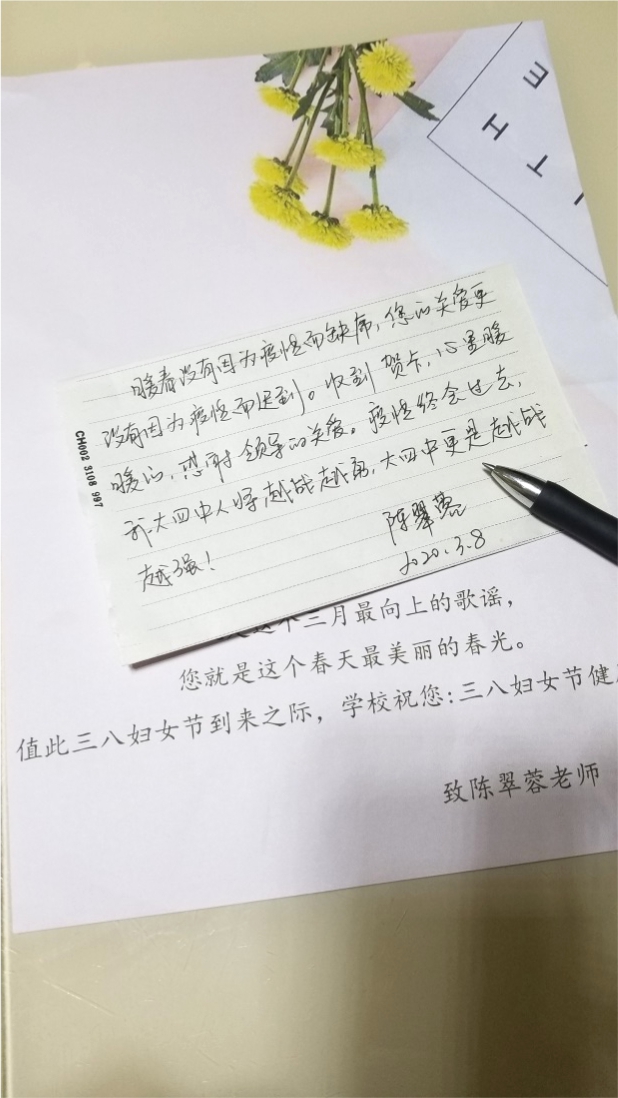 THE
暖春没有因为疫情而缺席,您的关爱更
没有因为疫情而迟到。收到贺卡,心里暖
暖的,感谢领导的关爱。疫情终会过去,
我大四中人将越战越勇,大四中更是越战
越强!
陈翠蓉
2020.3.8
CH002 3108 997
这个三月最向上的歌谣,
您就是这个春天最美丽的春光。
值此三八妇女节到来之际,学校祝您:三八妇女节健
致陈翠蓉老师